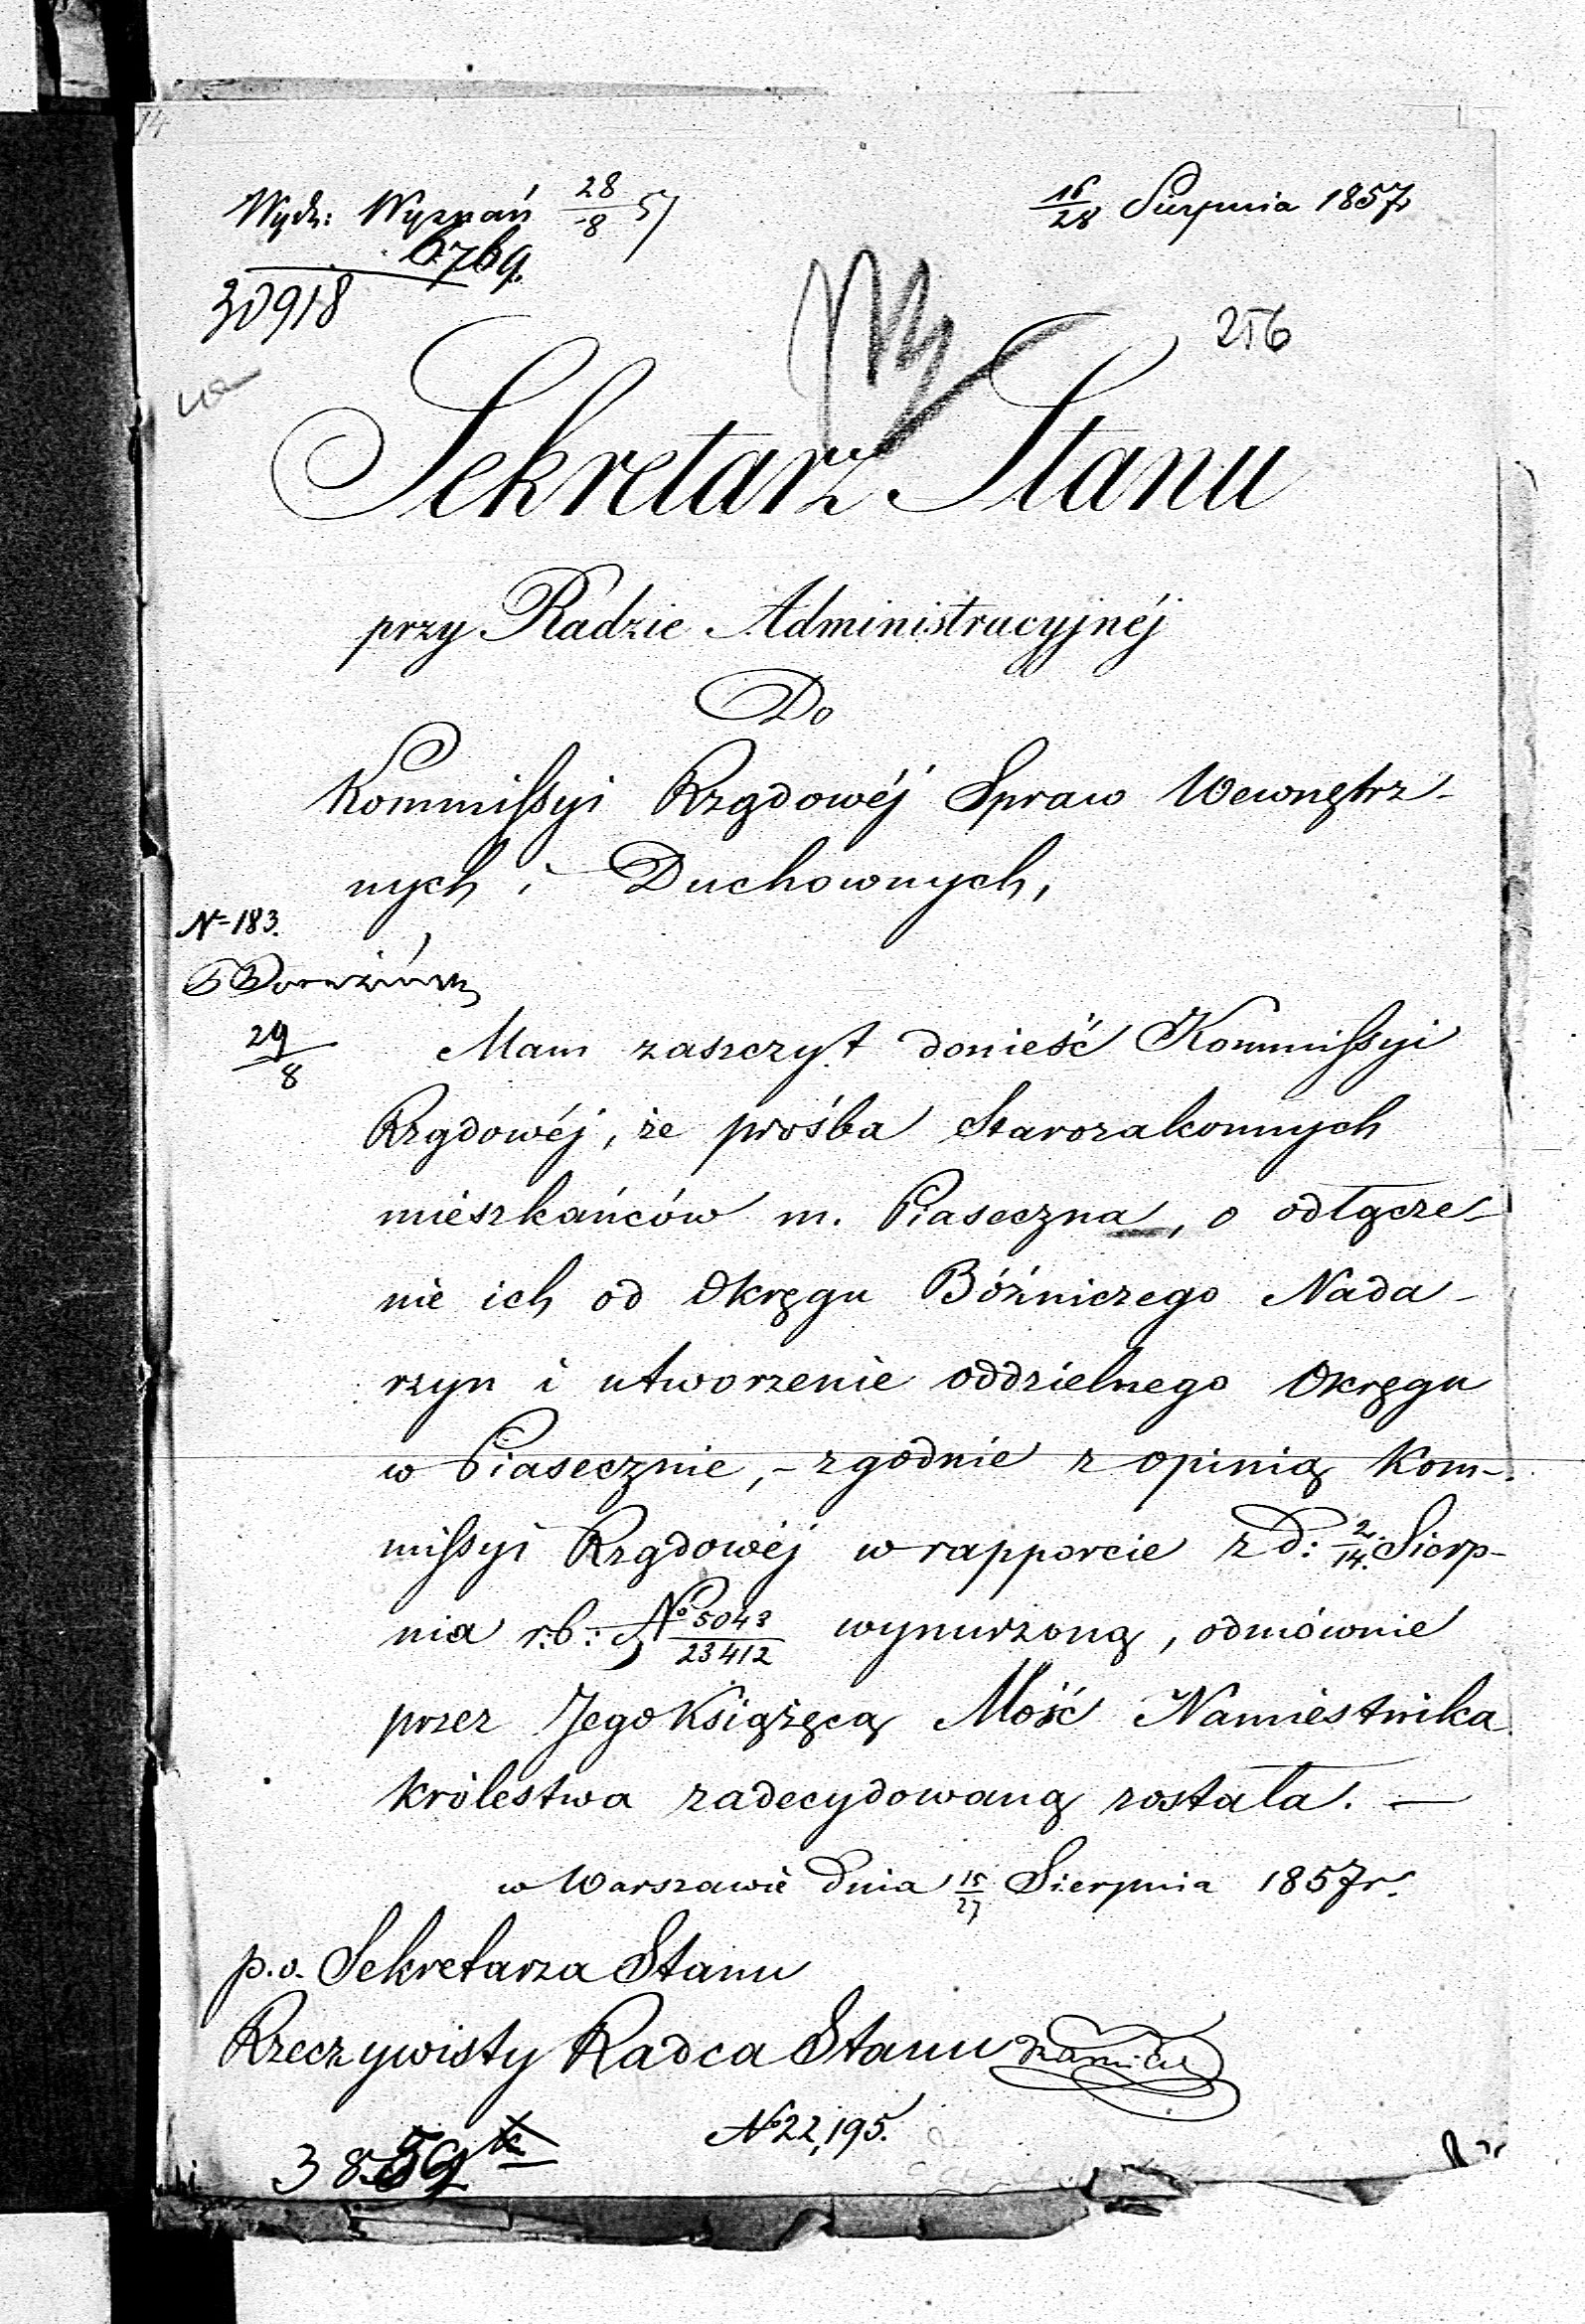 14
Wydz: Wyznań 28/8 57
6769.
30918
16/28 Sierpnia 1857r
256
Sekretarz Stanu
przy Radzie Administracyjnéj
Do
Kommissyi Rządowéj Spraw Wewnętrz-
nych i Duchownych,
N=183.
29/8
Mam zaszczyt donieść Kommissyi
Rządowéj, że prośba Starozakonnych
mieszkańców m. Piaseczna, o odłącze-
nie ich od Okręgu Bóźniczego Nada-
rzyn i utworzenie oddzielnego Okręgu
w Piasecznie, - zgodnie z opinią Kom-
missyi Rządowéj w rapporcie z d: 2/14. Sierp-
nia r.b: No 5043/23412 wynurzoną, odmównie
przez Jego Książęcą Mość Namiestnika
Królestwa zadecydowaną została. —
w Warszawie dnia 15/27 Sierpnia 1857r.
p.o. Sekretarza Stanu
Rzeczywisty Radca Stanu
No 22,195.